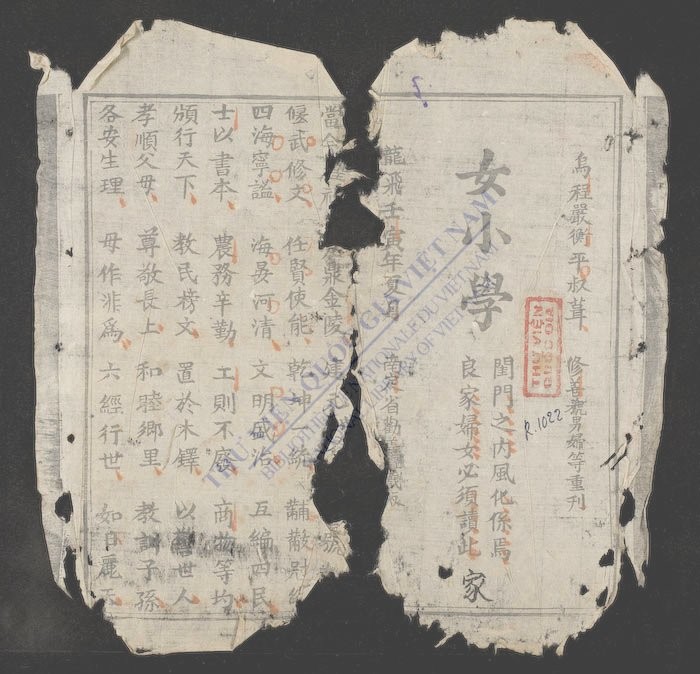 烏程嚴衡平叔葺 修善號男婦等重刊
女小學
閨門之內風化係焉
良家婦女必須讀此 家
龍飛壬寅年夏月 南定省勸善 板
當今 鼎金陵 建元 號
偃武修文 任賢使能 乾坤一統 黼黻
四海寧謐 海晏河清 文明盛治 互編四民
士以書本 農務辛勤 工則不廢 商物等均
頒行天下 教民榜文 置於木鐸 以警世人
孝順父母 尊敬長上 和睦鄉里 教訓子孫
各安生理 毋作非為 六經行世 如日麗天
THƯ VIỆN
QUOC GIA
R.1022
THƯ VIỆN QUỐC GIA VIỆT NAM
BIBLIOTHEQUE NATIONALE DU VIETNAM
LIBRARY OF VIETNAM